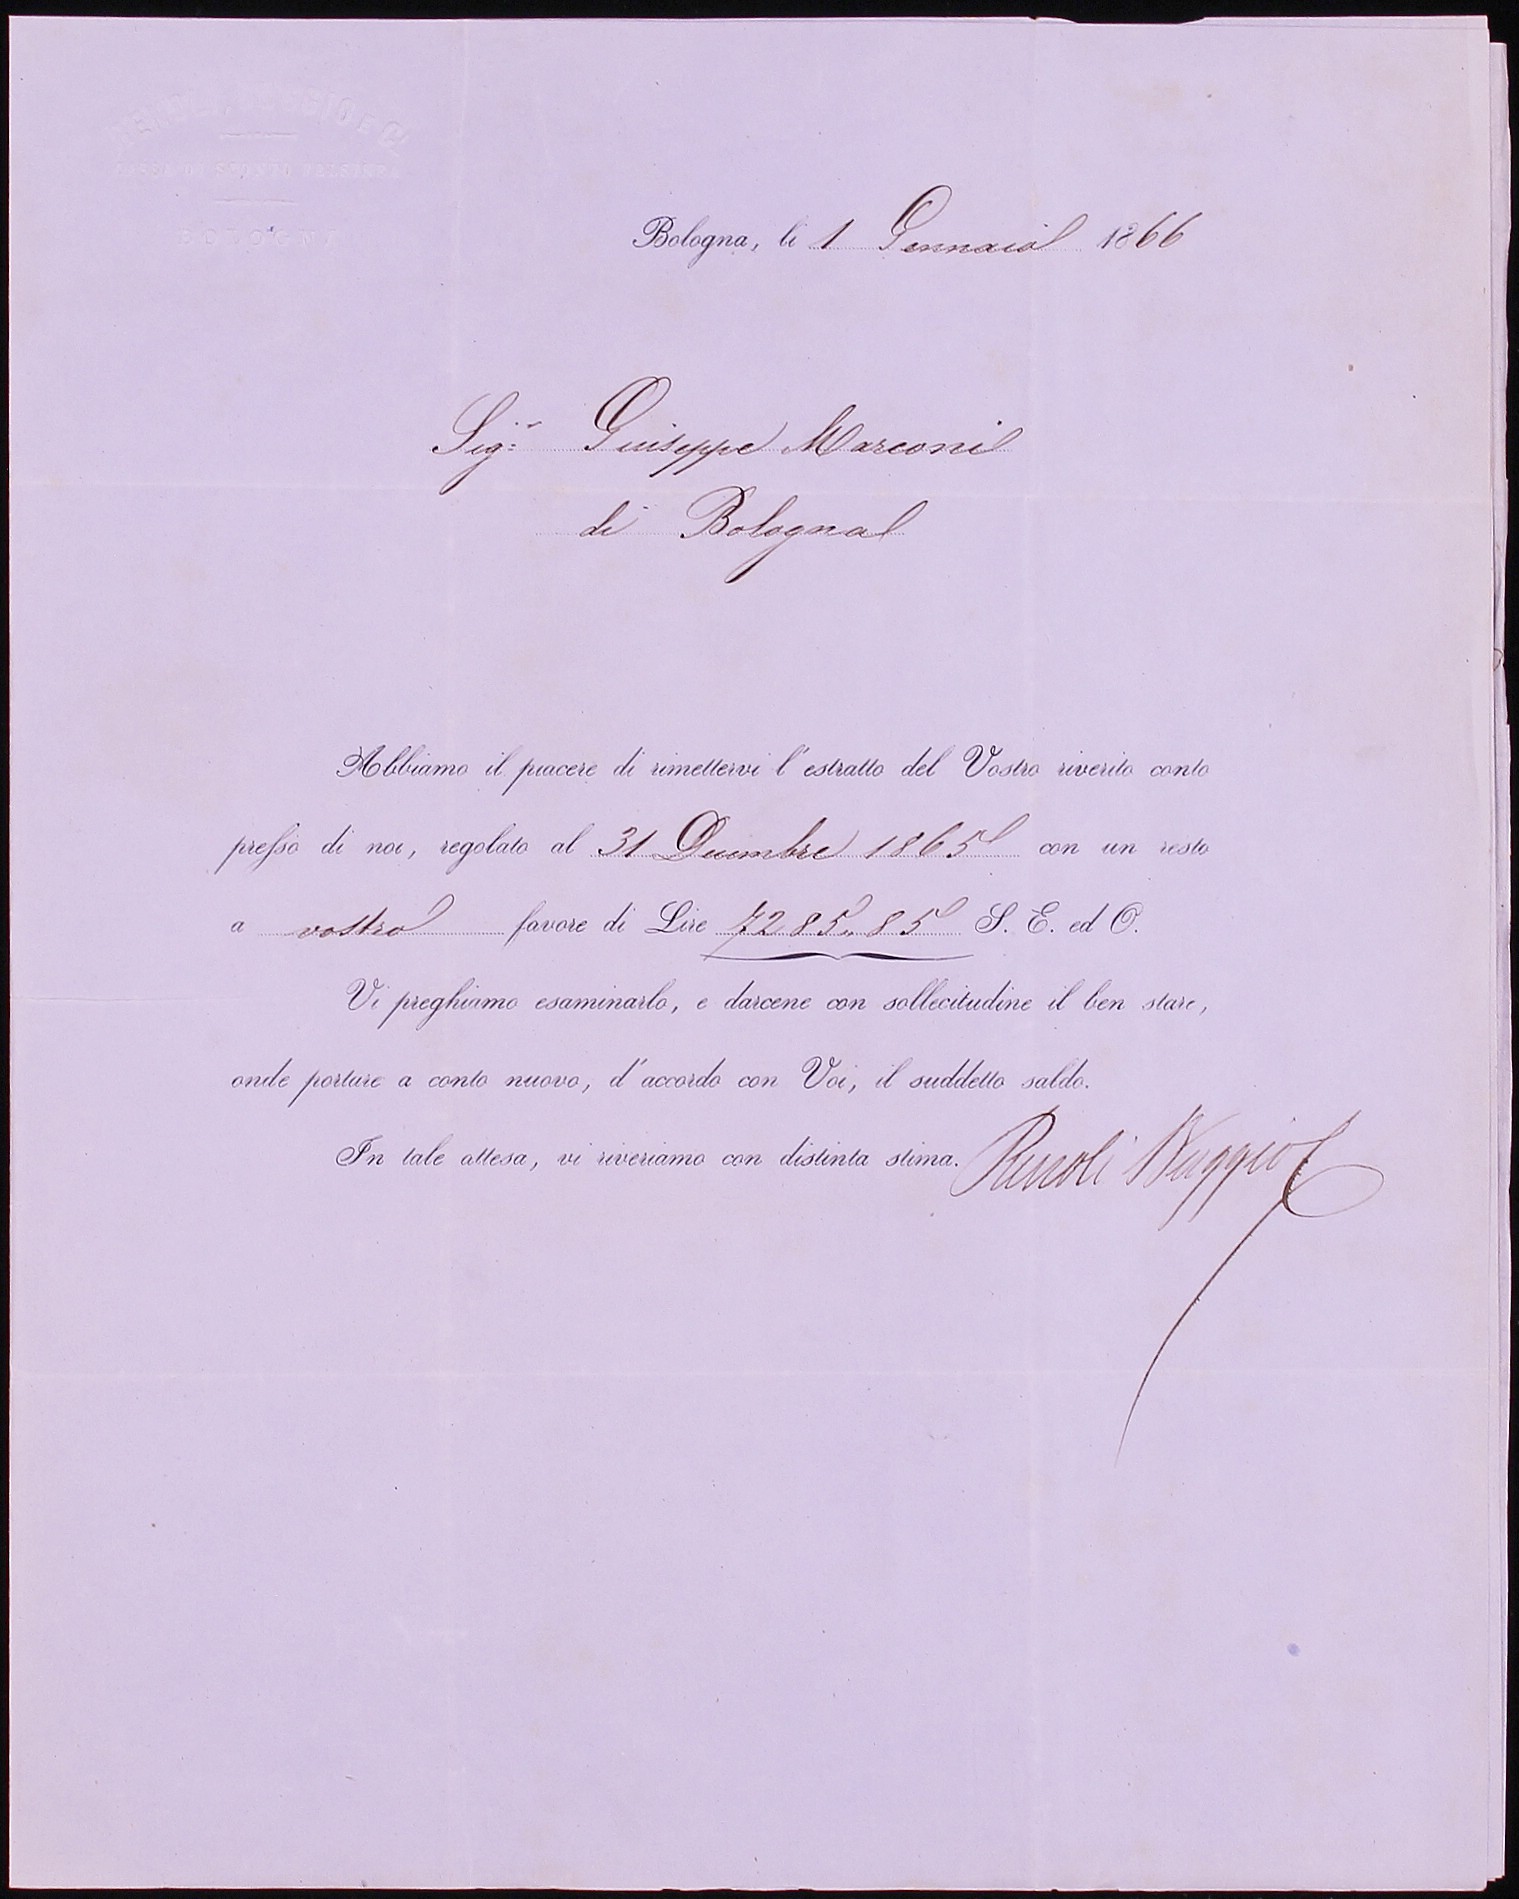 CASSA DI SCONTO FELSINEA
BOLOGNA
Bologna, li 1 Gennaio 1866
Sig.r Giuseppe Marconi
di Bologna
Abbiamo il piacere di rimettervi l'estratto del Vostro riverito conto
presso di noi, regolato al 31 Dicembre 1865 con un resto
a vostro favore di Lire 7285,,85 S. E. ed O.
Vi preghiamo esaminarlo, e darcene con sollecitudine il ben stare,
onde portare a conto nuovo, d'accordo con Voi, il suddetto saldo.
In tale attesa, vi riveriamo con distinta stima.